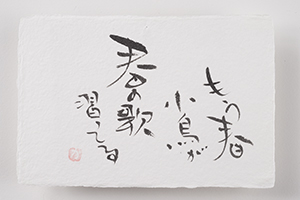 もう春
小鳥が
春の歌
習ってる